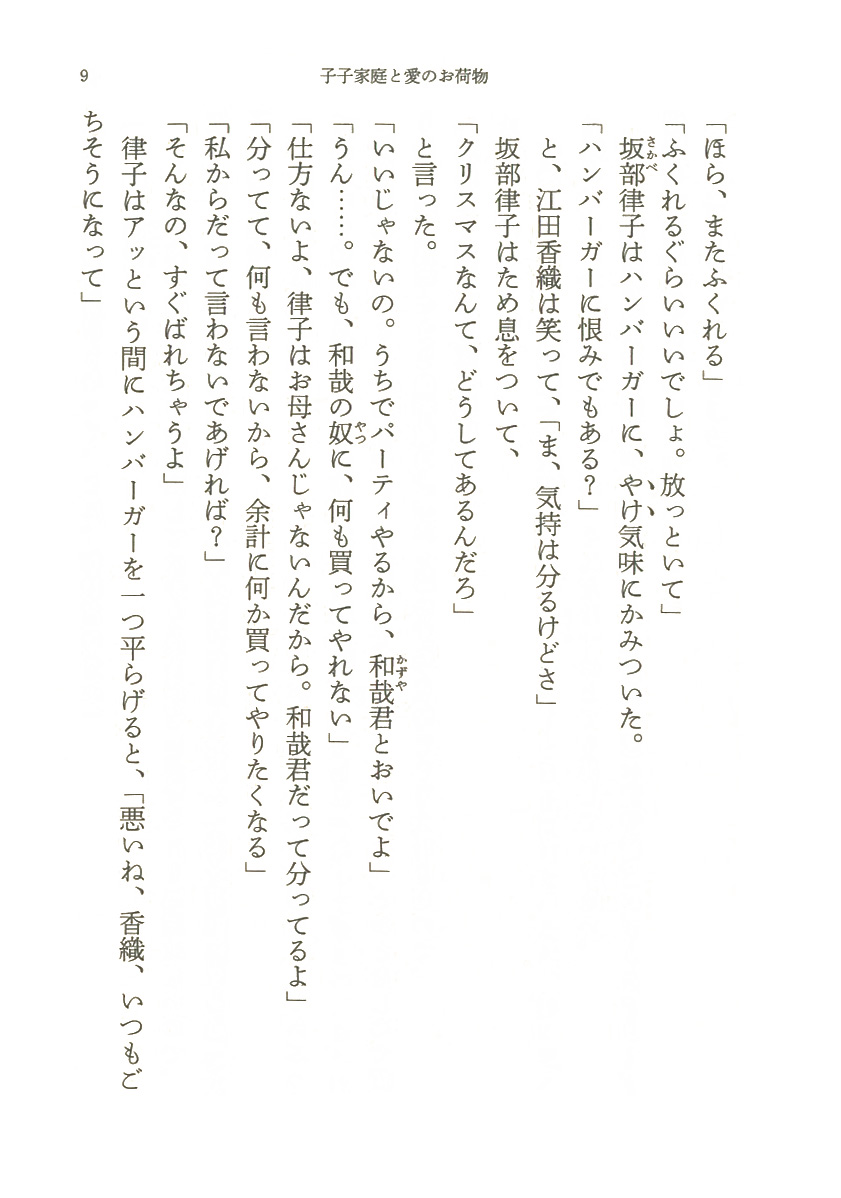 9
子子家庭と愛のお荷物
「ほら、またふくれる」
「ふくれるぐらいいいでしょ。放っといて」
坂部律子はハンバーガーに、やけ気味にかみついた。
「ハンバーガーに恨みでもある？」
と、江田香織は笑って、「ま、気持は分るけどさ」
坂部律子はため息をついて、
「クリスマスなんて、どうしてあるんだろ」
と言った。
「いいじゃないの。うちでパーティやるから、和哉君とおいでよ」
「うん……。でも、和哉の奴に、何も買ってやれない」
「仕方ないよ、律子はお母さんじゃないんだから。和哉君だって分ってるよ」
「分ってて、何も言わないから、余計に何か買ってやりたくなる」
「私からだって言わないであげれば？」
「そんなの、すぐばれちゃうよ」
律子はアッという間にハンバーガーを一つ平らげると、「悪いね、香織、いつもご
ちそうになって」
さかべ
かずや
やつ